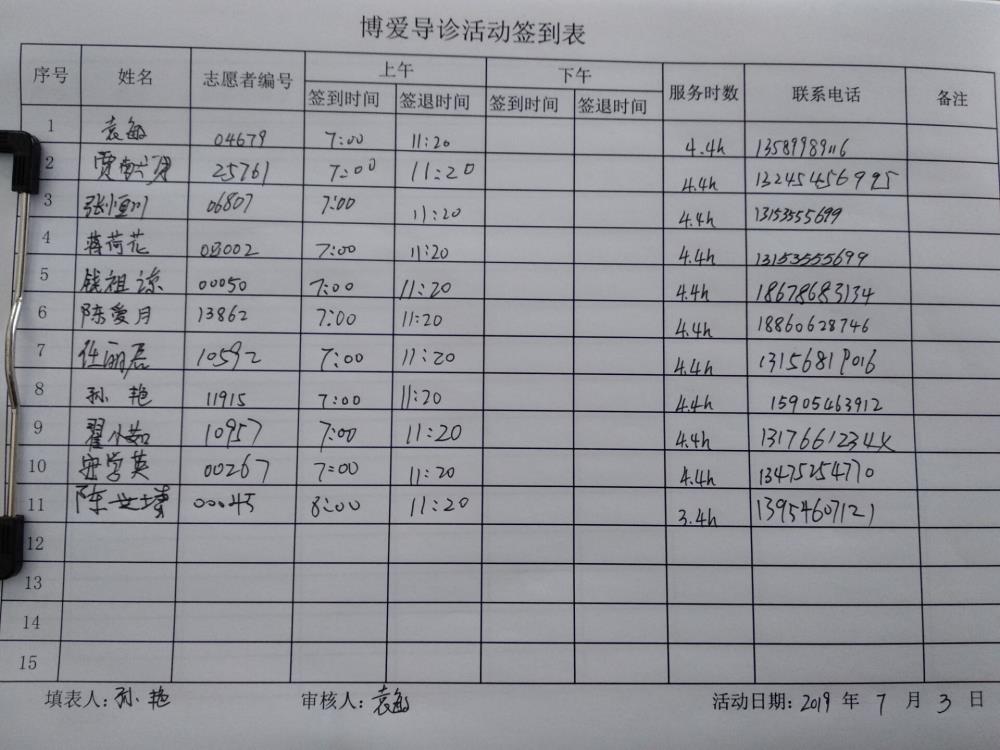 博爱导诊活动签到表
序号 姓名 志愿者编号 上午 下午 服务时数 联系电话 备注
签到时间 签退时间 签到时间 签退时间
1 袁敏 04679 7:00 11:20 4.4h 13589989116
2 贾 25761 7:00 11:20 4.4h 13245456995
3 张恒川 06807 7:00 11:20 4.4h 13153555699
4 蒋荷花 08002 7:00 11:20 4.4h 13153555699
5 钱祖谅 00050 7:00 11:20 4.4h 18678683134
6 陈爱月 13862 7:00 11:20 4.4h 18860628746
7 任丽君 10592 7:00 11:20 4.4h 13156819016
8 孙艳 11915 7:00 11:20 4.4h 15905463912
9 翟小茹 10957 7:00 11:20 4.4h 1317661234X
10 安学英 00267 7:00 11:20 4.4h 13475254770
11 陈 00045 8:00 11:20 3.4h 13954607121
12
13
14
15
填表人:孙艳 审核人:袁敏 活动日期:2019年7月3日